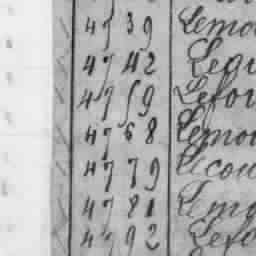 4739 Lemo
4742 Legu
4759 Lefor
4768 Lemo
4779 Lecou
4781 Lemo
4792 Lefo